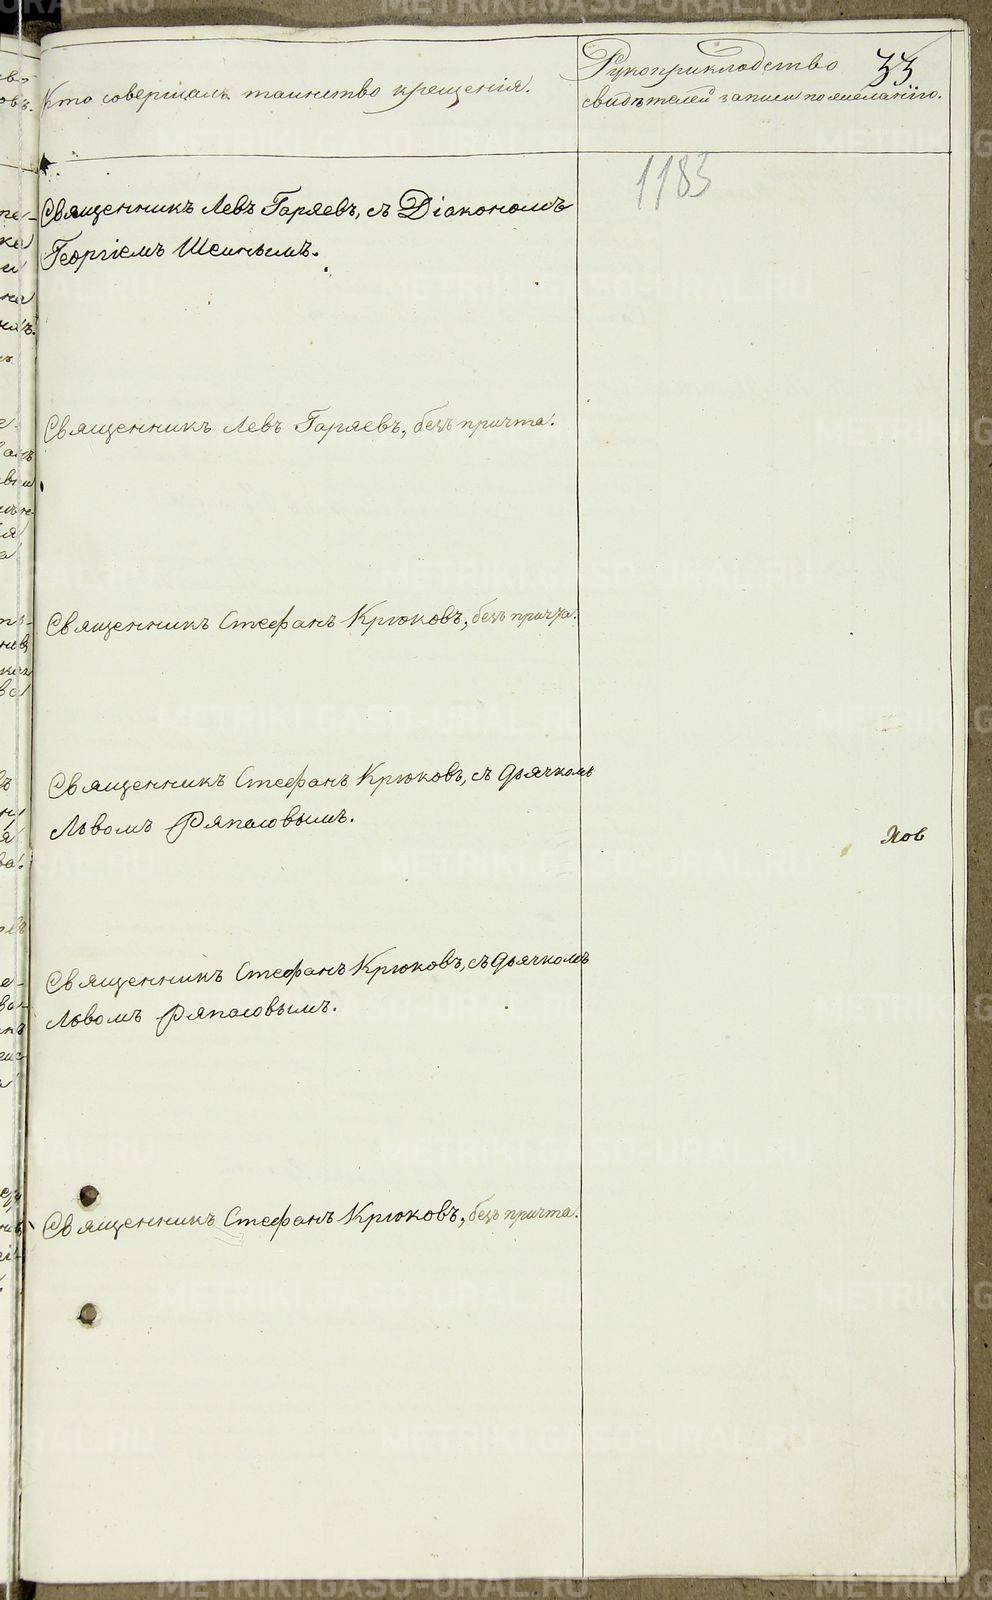 Кто совершалъ таинство крещенія.
Рукоприкладство
свидѣтелей записи по желанію.
33
1183
Священникъ Левъ Гаряевъ, съ Діакономъ
Георгіемъ Шеинымъ.
Священникъ Левъ Гаряевъ, безъ причта.
Священникъ Стефанъ Крюковъ, безъ причта.
Священникъ Стефанъ Крюковъ, съ дьячкомъ
Львомъ Ряпасовымъ.
Священникъ Стефанъ Крюковъ, съ дьячкомъ
Львомъ Ряпасовымъ.
Священникъ Стефанъ Крюковъ, безъ причта.
METRIKI.GASO-URAL.RU